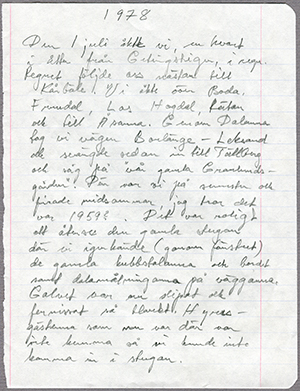 1978
Den 1 juli åkte vi, en kvart
i åtta från Getingstigen, i regn.
Regnet följde oss nästan till
Vi åkte över
Los Hogdal, Rätan
och till Åsarna. Genom Dalarna
tog vi vägen Borlänge – Leksand
de svängde sedan in till Tällberg
och såg på vår gamla
gårdar! Där var vi på semester och
firade midsommar, jag tror det
var 1959? Det var roligt
att återse den gamla stugan
där vi igenkände (genom fönstret)
de gamla kubbstolarna och bordet
samt dalamålningarna på väggarna.
Golvet var nu slipat och
fernissat så blankt. Hyres-
gästerna som nu var där var
inte hemma så vi kunde inte
komma in i stugan.